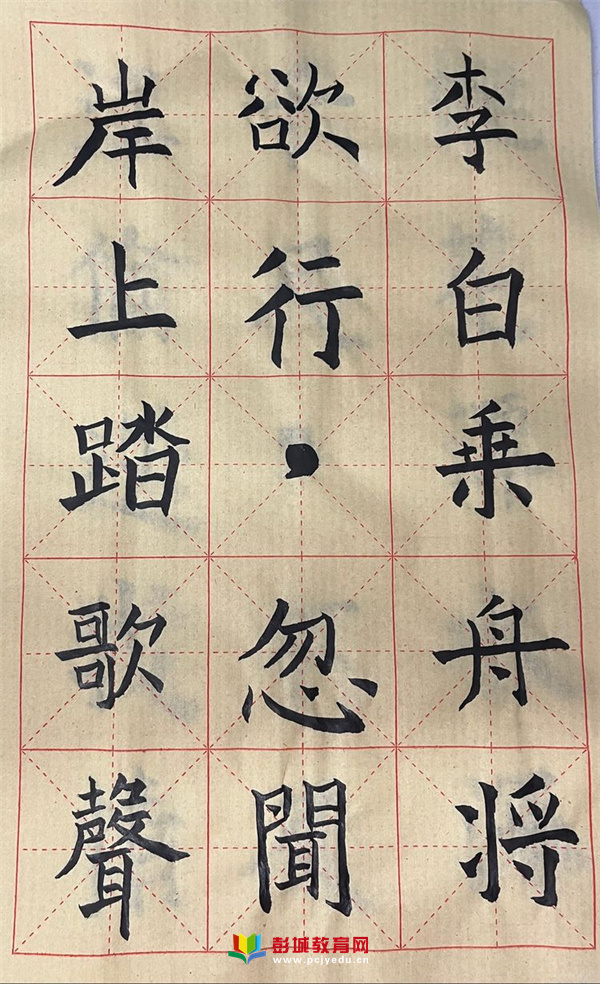 李白乘舟将
欲行，忽聞
岸上踏歌聲
彭城教育网
www.pcjyedu.cn